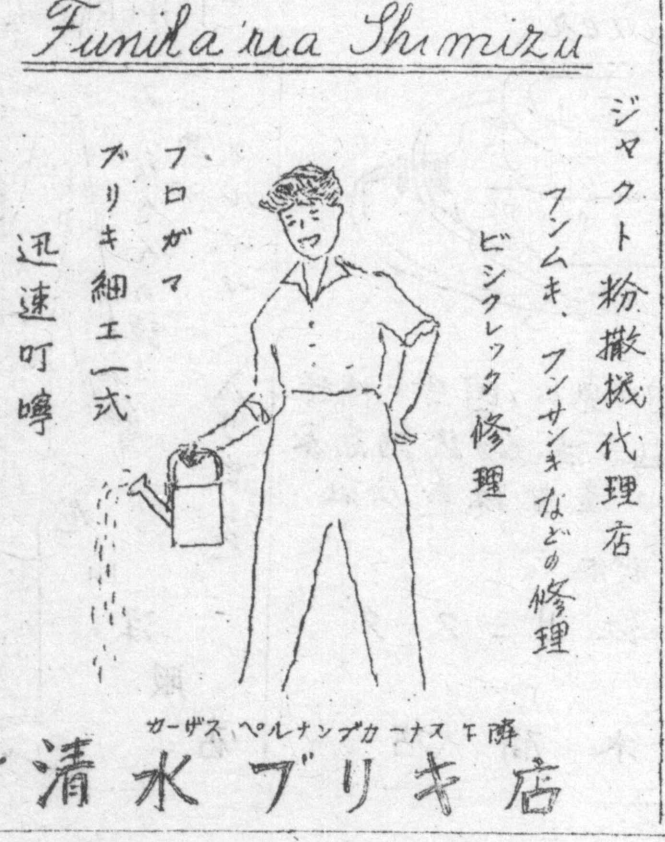 Funila'ria Shimizu
ジャクト粉撒机代理店
フンムキ、フンサンキなどの修理
ビシクレッタ修理
フロガマ
ブリキ細工一式
迅速叮嚀
カーザス ペルナンブカーナス下隣
清水ブリキ店